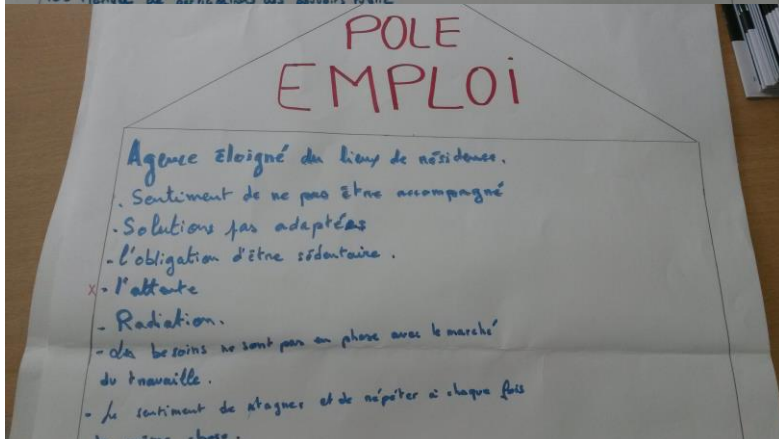 POLE
EMPLOi
Agence éloigné du lieux de résidence.
. Sentiment de ne pas être accompagné
- Solutions pas adaptées
- l'obligation d'être sédentaire.
x - l'attente
- Radiation.
- Les besoins ne sont pas en phase avec le marché
du travaille.
- Le sentiment de stagner et de répéter à chaque fois
chose.